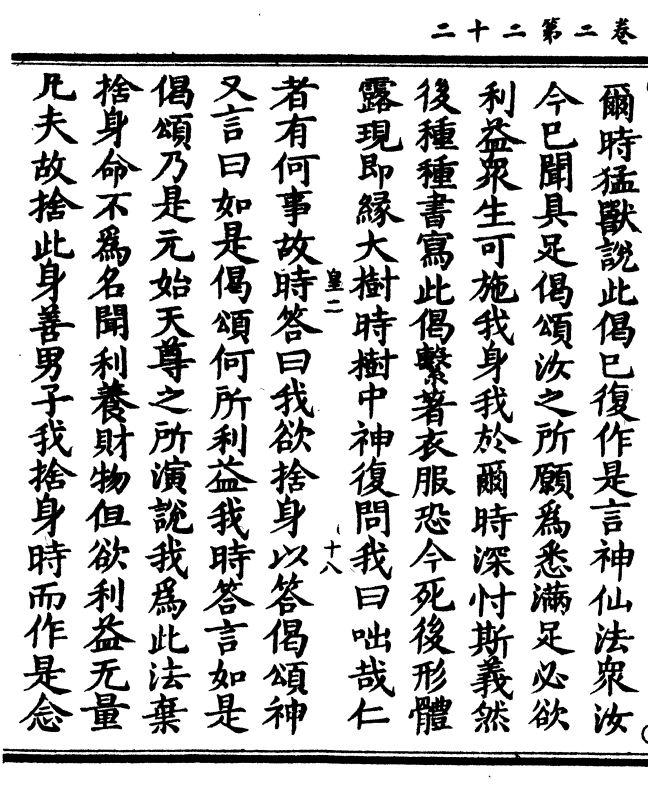 卷二第二十二
爾時猛獸說此偈已復作是言神仙法衆汝
今已聞具足偈頌汝之所願爲悉滿足必欲
利益衆生可施我身我於爾時深忖斯義然
後種種書寫此偈繫著衣服恐今死後形體
露現即緣大樹時樹中神復問我曰咄哉仁
皇二 十八
者有何事故時答曰我欲捨身以答偈頌神
又言曰如是偈頌何所利益我時答言如是
偈頌乃是元始天尊之所演說我爲此法棄
捨身命不爲名聞利養財物但欲利益无量
凡夫故捨此身善男子我捨身時而作是念